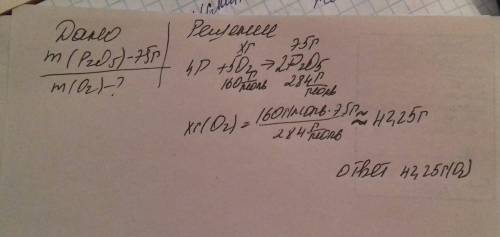 Дано
m(P2O5)-75г
m(O2)-?
Решение
xг 75г
4P+5O2→2P2O5
160г/моль 284г/моль
xг(O2)=160г/моль·75г/284г/моль≈42,25г
ответ 42,25г(O2)